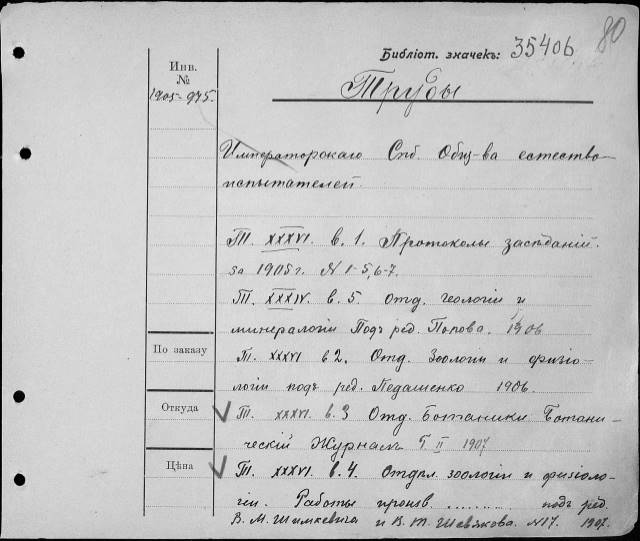 80
Библіот. значекъ: 35406
Инв.
№
1905-975.
Труды
Императорскаго Спб. Общ-ва естество-
испытателей
Т. XXXVI. в. 1. Протоколы засѣданій.
за 1905 г. N 1-5, 6-7.
Т. XXXIV. в. 5. Отд. геологіи и
минералогіи Подъ ред. Попова. 1906
По заказу
Т. XXXVI в 2. Отд. Зоологіи и физіо-
логіи подъ ред. Педашенко 1906.
Откуда
Т. XXXVI. в. 3 Отд. Ботаники Ботани-
ческій Журналъ Г. II 1907
Цѣна
Т. XXXVI. в. 4. Отдѣл. зоологіи и физіоло-
гіи. Работы произв. .......... подъ ред.
В. М. Шимкевича и В. Т. Шевякова. N 17. 1907.